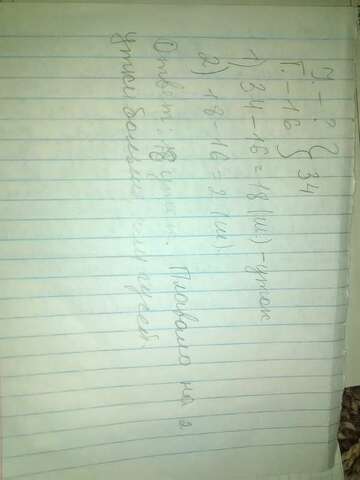 У. – ? } 34
Г. – 16
1) 34 – 16 = 18 (ш.) – уток
2) 18 – 16 = 2 (ш).
Ответ: 18 уток. Плавало на 2
утки больше чем гусей.